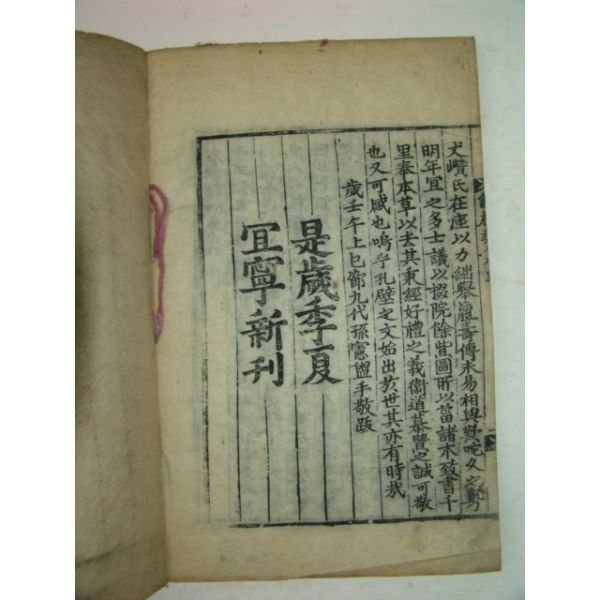 丈巑氏在座以力綿舉嬴奇傳未易相與㜻咜久之粤
明年宜之多士議以掇院餘貲圖所以當諸木致書千
里奉本草以去其秉經好禮之義衛道慕賢之誠可敬
也又可感也嗚乎孔壁之文始出於世其亦有時哉
歲壬午上巳節九代孫憲 盥手敬跋
是歲季夏
宜寧新刊